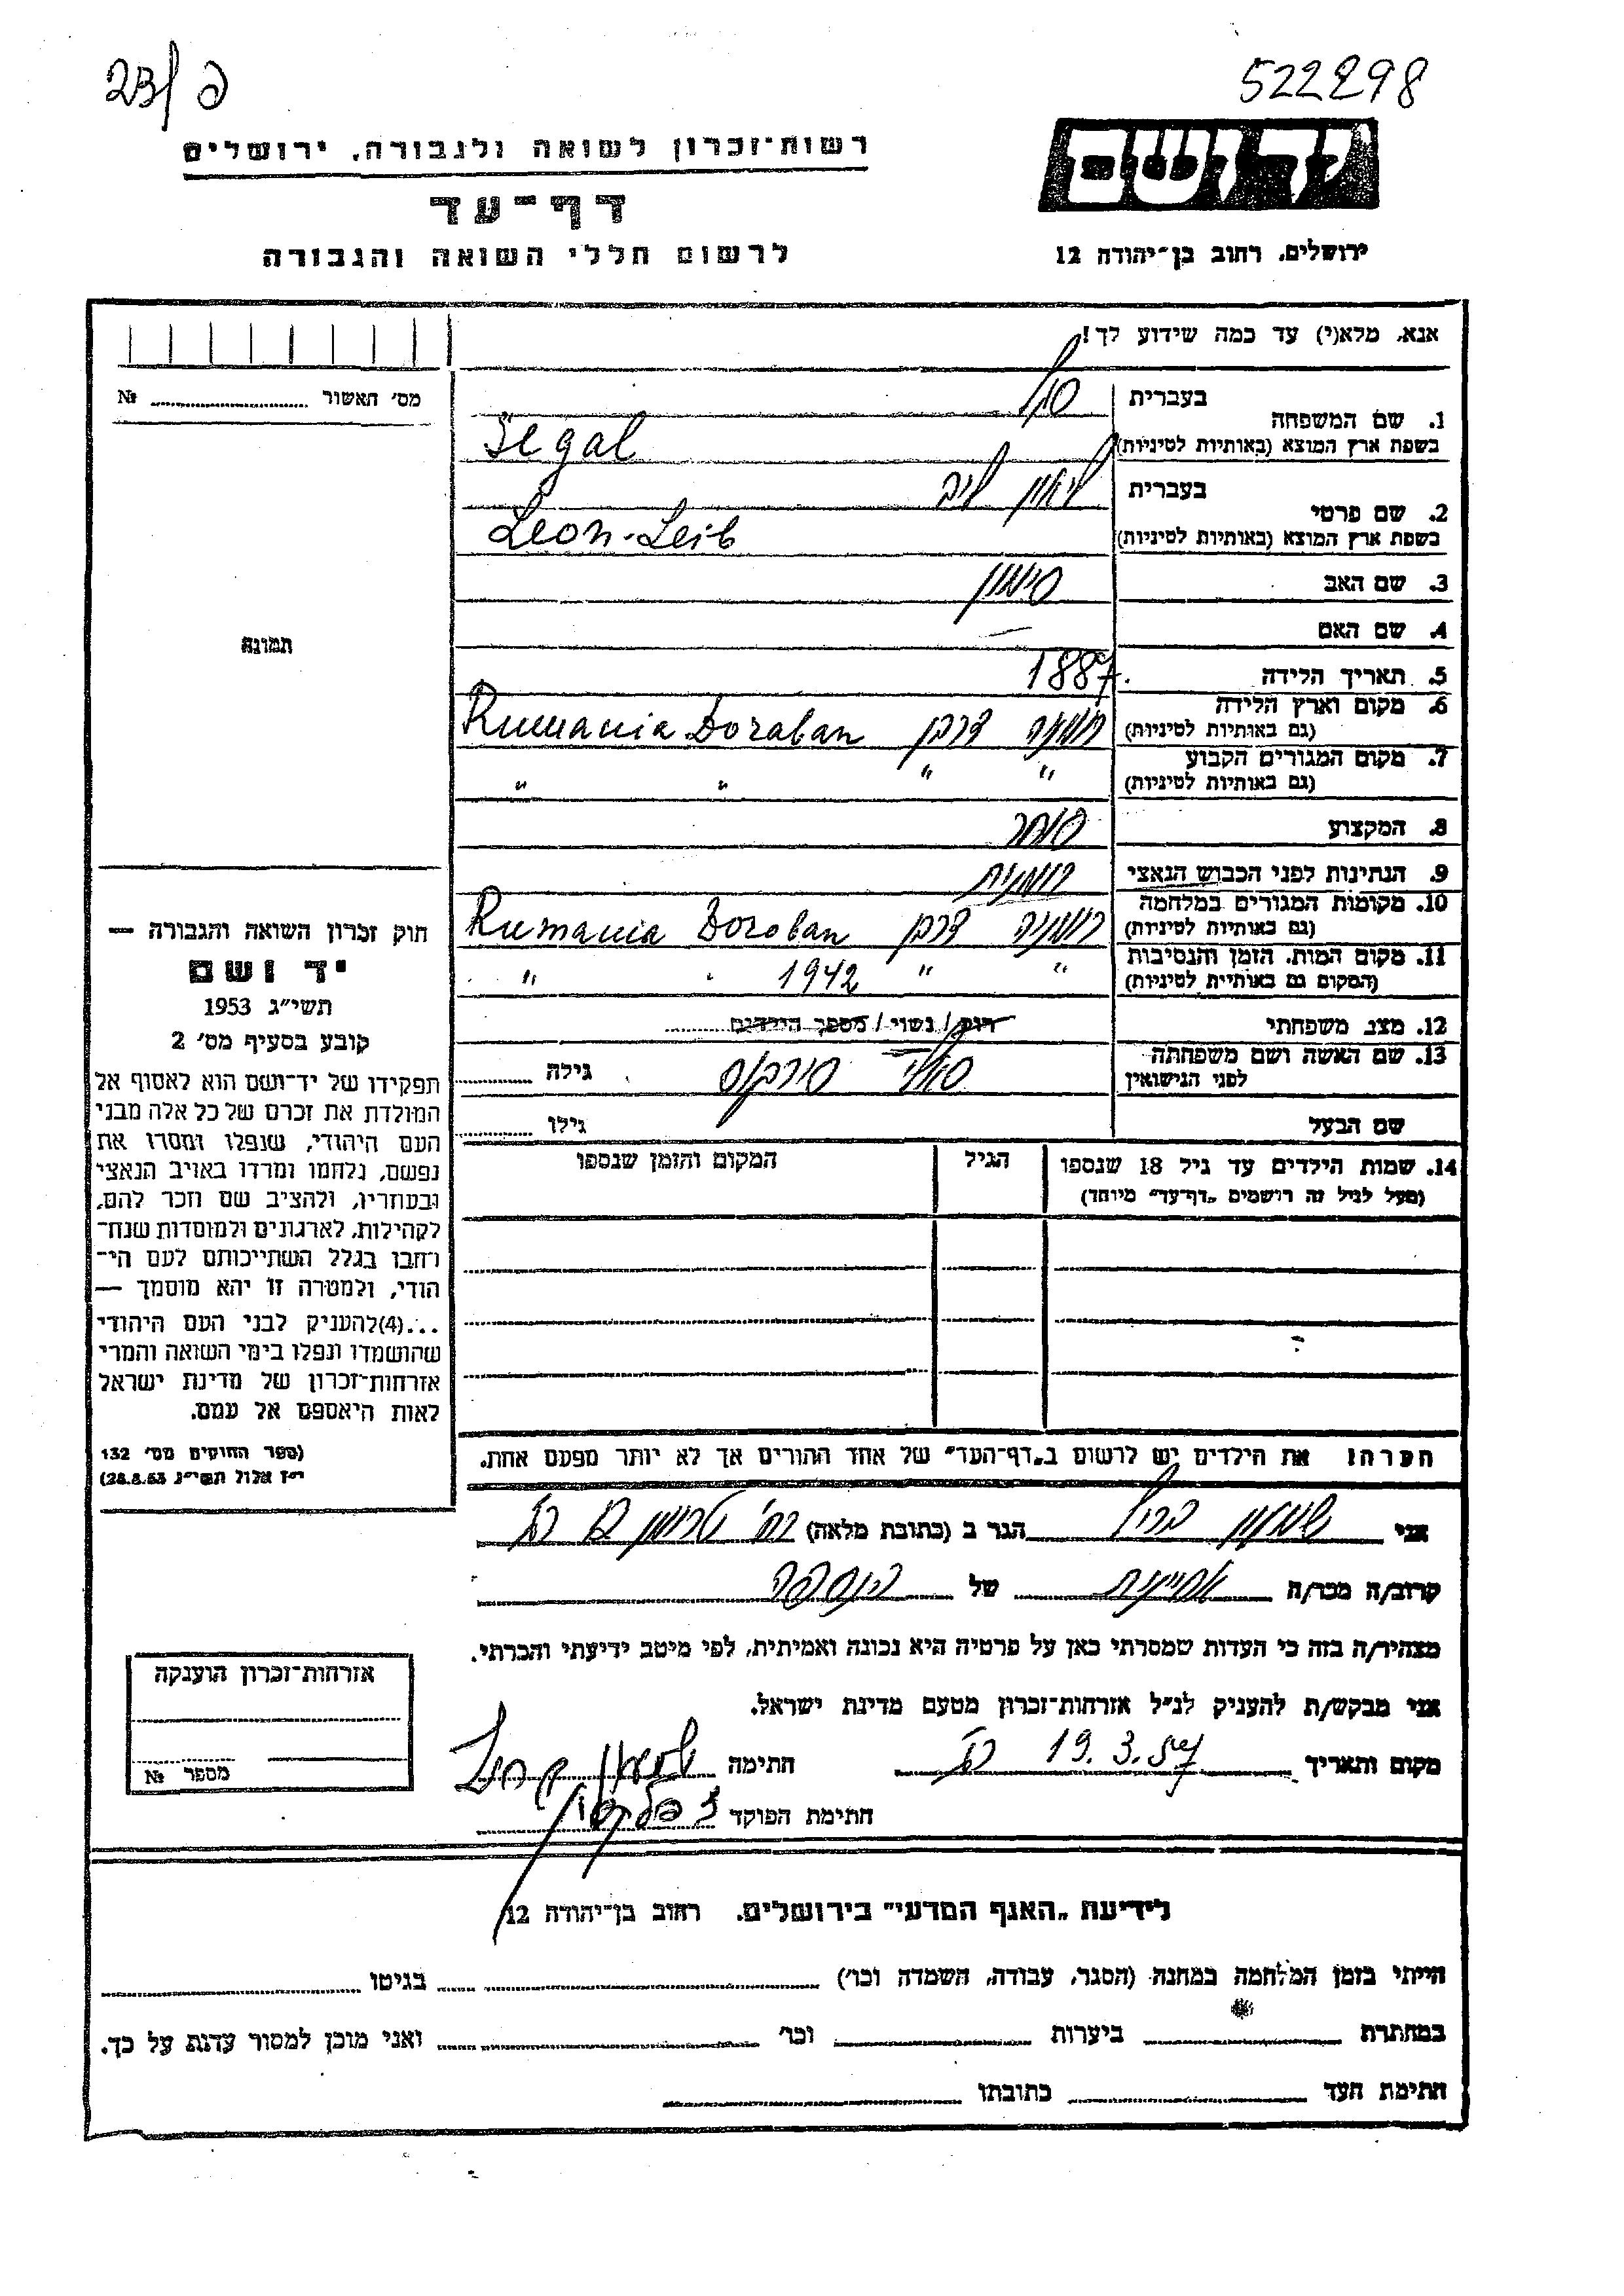 23/ פ
522298
רשות-זכרון לשואה ולגבורה, ירושלים
דף-עד
לרשום חללי השואה והגבורה
יד ושם
ירושלים, רחוב בן-יהודה 12
אנא, מלא(י) עד כמה שידוע לך!
מס' האשור № 
1. שם המשפחה
בעברית סגל
בשפת ארץ המוצא (באותיות לטיניות) Segal
2. שם פרטי
בעברית ליאון ליב
בשפת ארץ המוצא (באותיות לטיניות) Leon-Leib
3. שם האב סימון
4. שם האם —
תמונה
5. תאריך הלידה 1887.
6. מקום וארץ הלידה
(גם באותיות לטיניות) רומניה דרבן Rumania Doraban
7. מקום המגורים הקבוע
(גם באותיות לטיניות) " " " "
8. המקצוע סוחר
9. הנתינות לפני הכבוש הנאצי רומנית
10. מקומות המגורים במלחמה
(גם באותיות לטיניות) רומניה דרבן Rumania Doroban
11. מקום המות, הזמן והנסיבות
(המקום גם באותיות לטיניות) " " 1942 "
12. מצב משפחתי רווק / נשוי / מספר הילדים
13. שם האשה ושם משפחתה
לפני הנישואין גילה
שם הבעל גילו
14. שמות הילדים עד גיל 18 שנספו
(מעל לגיל זה רושמים „דף-עד" מיוחד)
הגיל
המקום והזמן שנספו
חוק זכרון השואה והגבורה —
יד ושם
תשי"ג 1953
קובע בסעיף מס' 2
תפקידו של יד-ושם הוא לאסוף אל
המולדת את זכרם של כל אלה מבני
העם היהודי, שנפלו ומסרו את
נפשם, נלחמו ומרדו באויב הנאצי
ובעוזריו, ולהציב שם וזכר להם,
לקהילות, לארגונים ולמוסדות שנח-
רבו בגלל השתייכותם לעם הי-
הודי, ולמטרה זו יהא מוסמך —
...(4)להעניק לבני העם היהודי
שהושמדו ונפלו בימי השואה והמרי
אזרחות-זכרון של מדינת ישראל
לאות היאספם אל עמם.
(ספר החוקים מס' 132
י"ז אלול תשי"ג 28.8.53)
הערה: את הילדים יש לרשום ב„דף-העד" של אחד ההורים אך לא יותר מפעם אחת.
אני שמעון הגר ב (כתובת מלאה) רח'
קרוב/ה מכר/ה של
מצהיר/ה בזה כי העדות שמסרתי כאן על פרטיה היא נכונה ואמיתית, לפי מיטב ידיעתי והכרתי.
אני מבקש/ת להעניק לנ"ל אזרחות-זכרון מטעם מדינת ישראל.
מקום ותאריך 19.3. חתימה שמעון
חתימת הפוקד
אזרחות-זכרון הוענקה
מספר №
לידיעת „האגף המדעי" בירושלים, רחוב בן-יהודה 12
הייתי בזמן המלחמה במחנה (הסגר, עבודה, השמדה וכו') בגיטו
במחתרת ביערות וכו' ואני מוכן למסור עדות על כך.
חתימת העד כתובתו